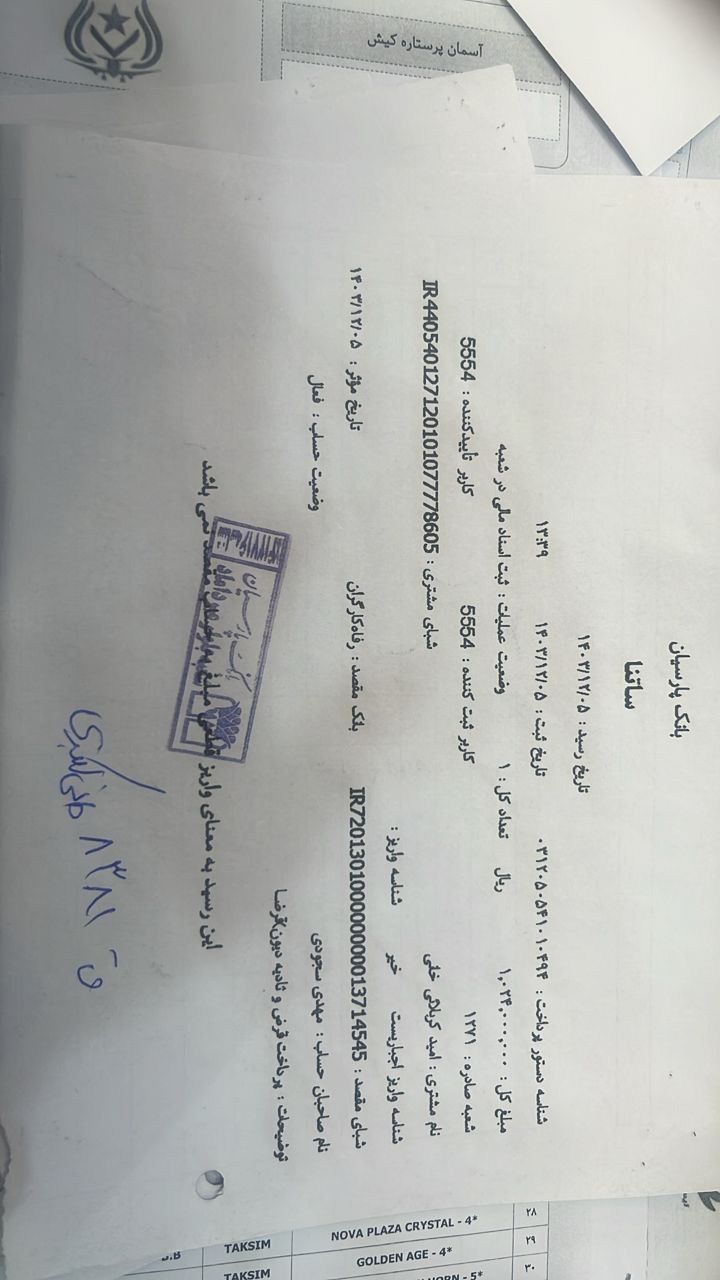 آسمان پرستاره کیش
بانک پارسیان
ساتنا
تاریخ رسید : ۱۴۰۳/۱۲/۰۵
شناسه دستور پرداخت : ۰۳۱۲۰۵۰۵۴۱۰۱۰۴۹۴ تاریخ ثبت : ۱۴۰۳/۱۲/۰۵ ۱۳:۳۹
مبلغ کل : ۱,۰۲۴,۰۰۰,۰۰۰ ریال تعداد کل : ۱ وضعیت عملیات : ثبت اسناد مالی در شعبه
شعبه صادره : ۱۲۷۱ کاربر ثبت کننده : 5554 کاربر تأییدکننده : 5554
نام مشتری : امید کربلائی خلی شبای مشتری : IR440540127120101077778605
شناسه واریز اجباریست خیر شناسه واریز :
شبای مقصد : IR720130100000000013714545 بانک مقصد : رفاه‌کارگران تاریخ مؤثر : ۱۴۰۳/۱۲/۰۵
نام صاحبان حساب : مهدی سجودی وضعیت حساب : فعال
توضیحات : پرداخت قرض و تادیه دیون/قرضا
این رسید به معنای واریز قطعی مبلغ به حساب مقصد نمی باشد
بانک پارسیان
ق ۸۳۸۱
۲۸
NOVA PLAZA CRYSTAL - 4* TAKSIM B.B
۲۹
GOLDEN AGE - 4* TAKSIM
۳۰